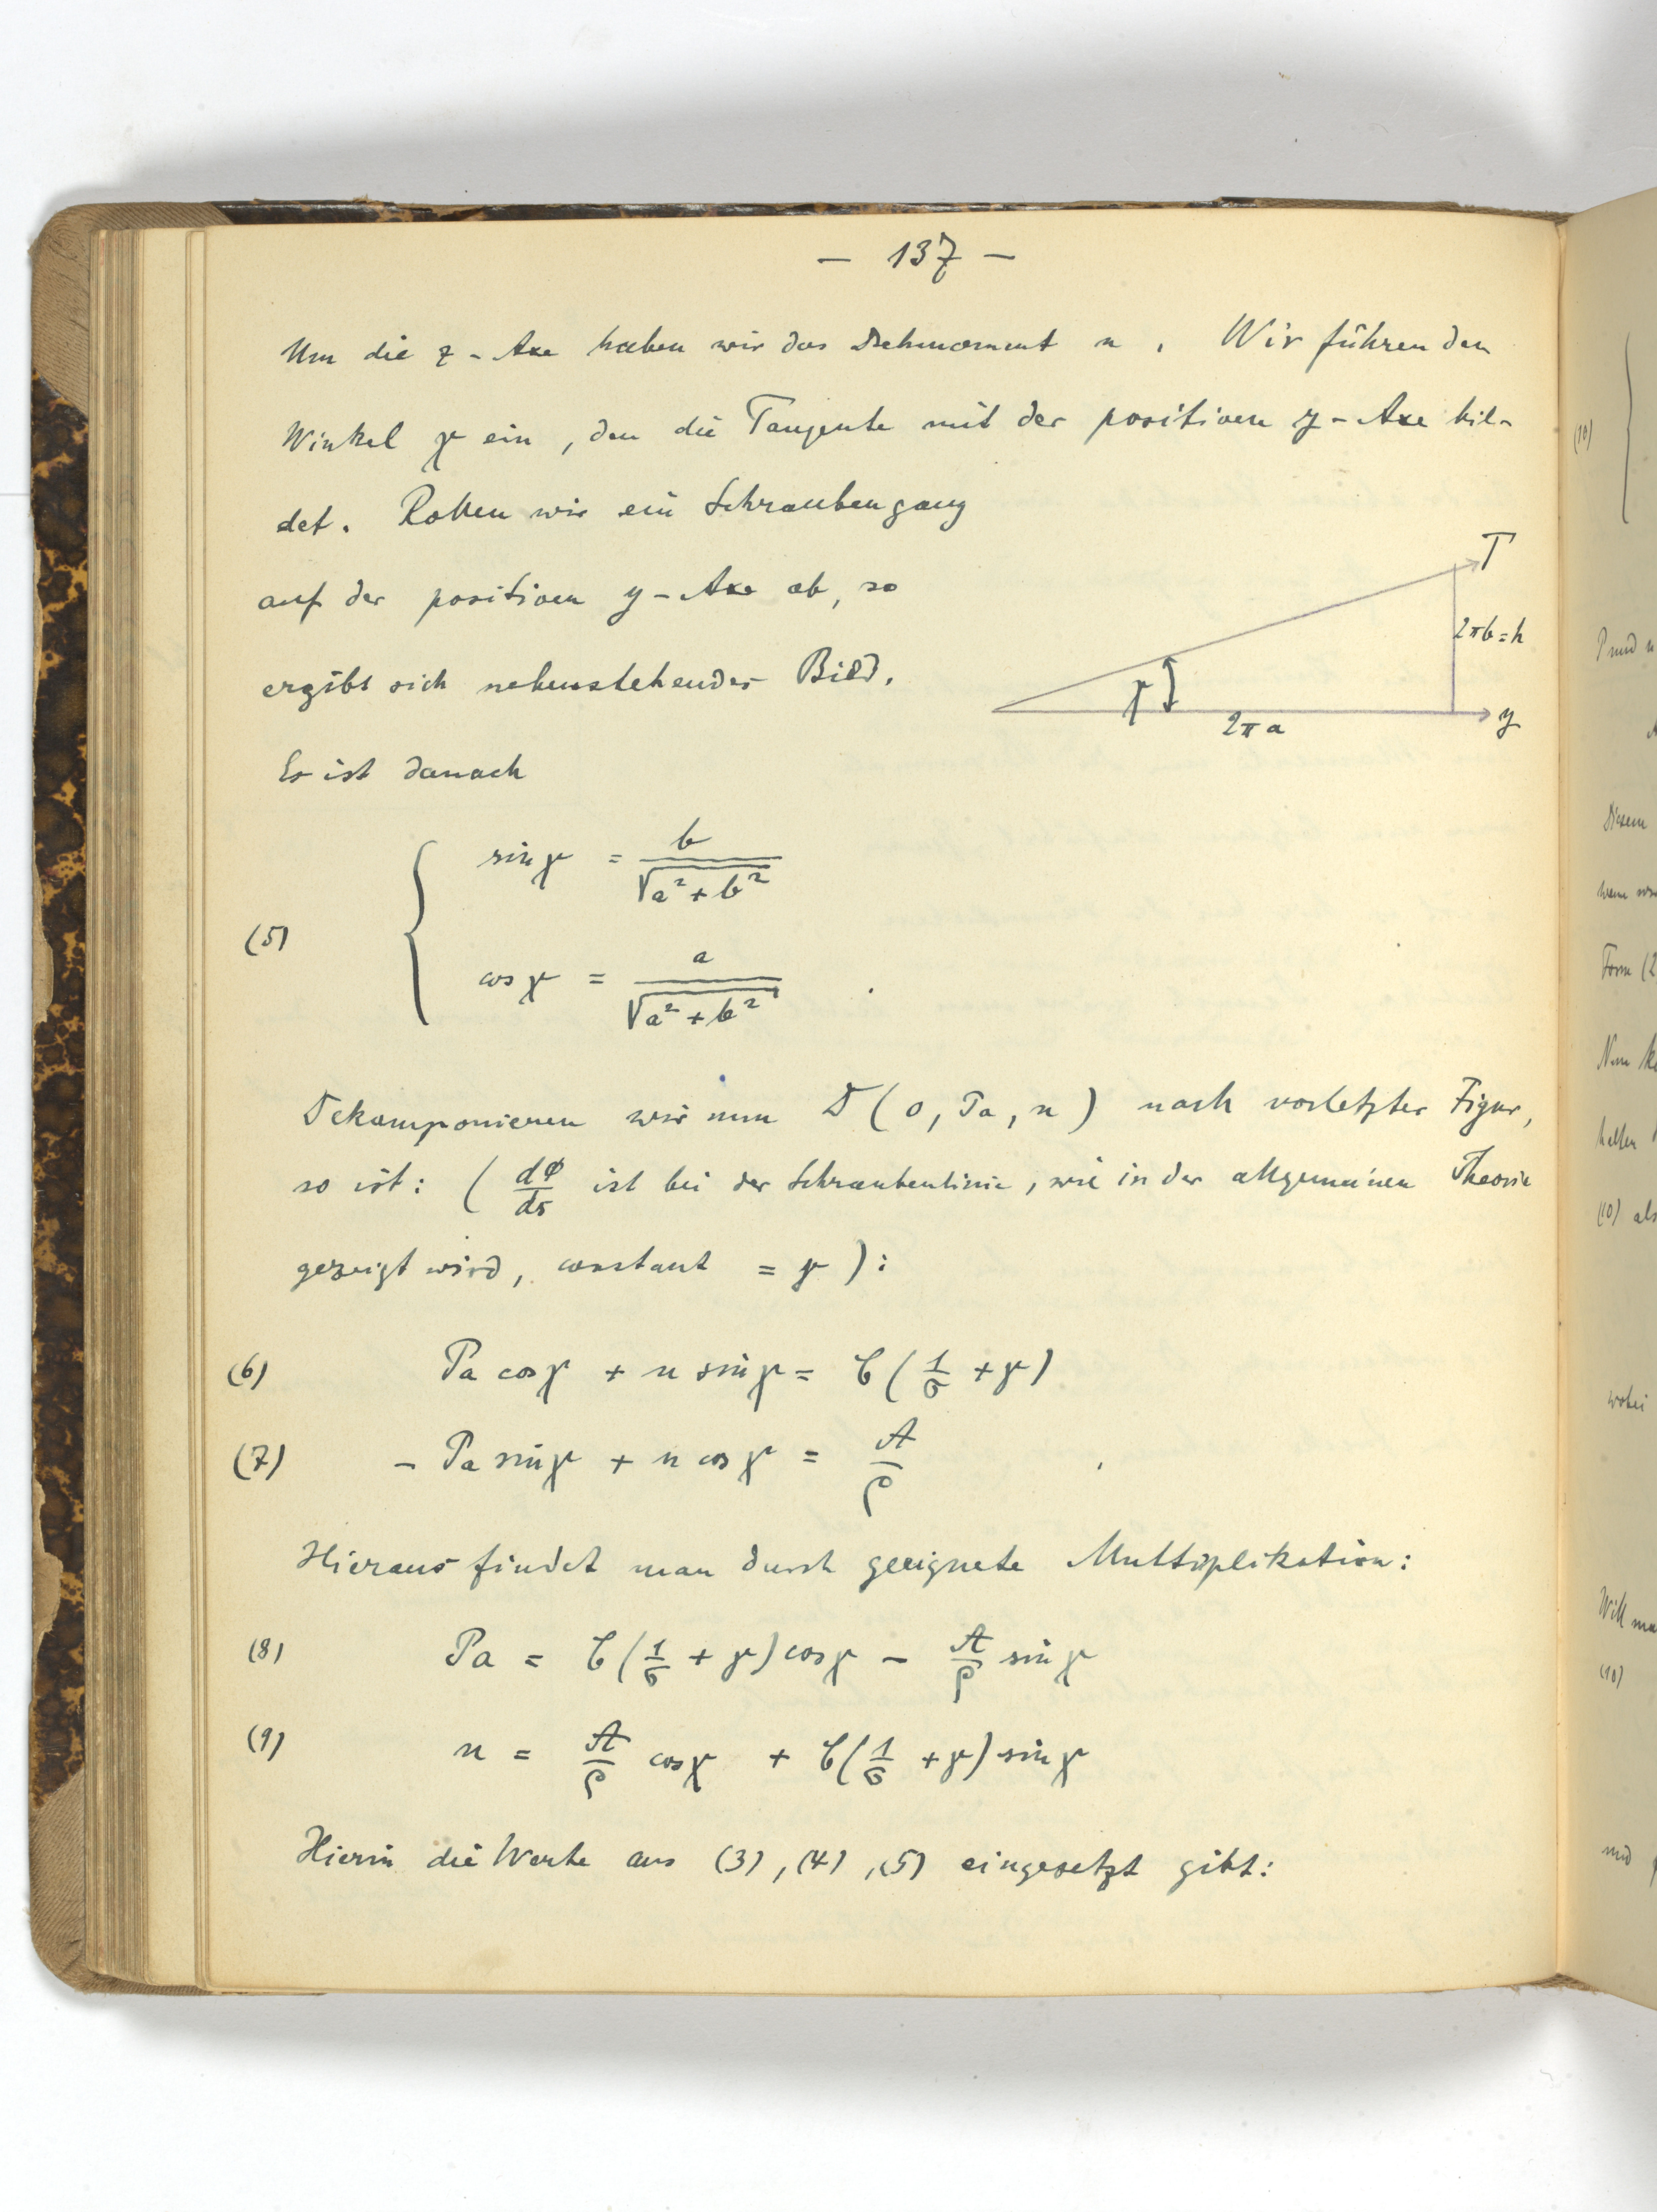 — 137 —
Um die z-Axe haben wir das Drehmoment n. Wir führen den
Winkel γ ein, den die Tangente mit der positiven y-Axe bil-
det. Rollen wir ein Schraubengang
auf der positiven y-Axe ab, so
ergibt sich nebenstehendes Bild.
T
2πb=h
γ
2πa
y
Es ist danach
(5)
sin γ = b / √(a² + b²)
cos γ = a / √(a² + b²) .
Dekomponieren wir nun D(0, Pa, n) nach vorletzter Figur,
so ist: (dφ/ds ist bei der Schraubenlinie, wie in der allgemeinen Theorie
gezeigt wird, constant = γ):
(6) Pa cos γ + n sin γ = C(1/σ + γ)
(7) - Pa sin γ + n cos γ = A/ρ .
Hieraus findet man durch geeignete Multiplikation:
(8) Pa = C(1/σ + γ) cos γ - A/ρ sin γ
(9) n = A/ρ cos γ + C(1/σ + γ) sin γ
Hierin die Werte aus (3), (4), (5) eingesetzt gibt:
(10)
Diesem
Form (2
(10) als
wobei
Will
(10)
und